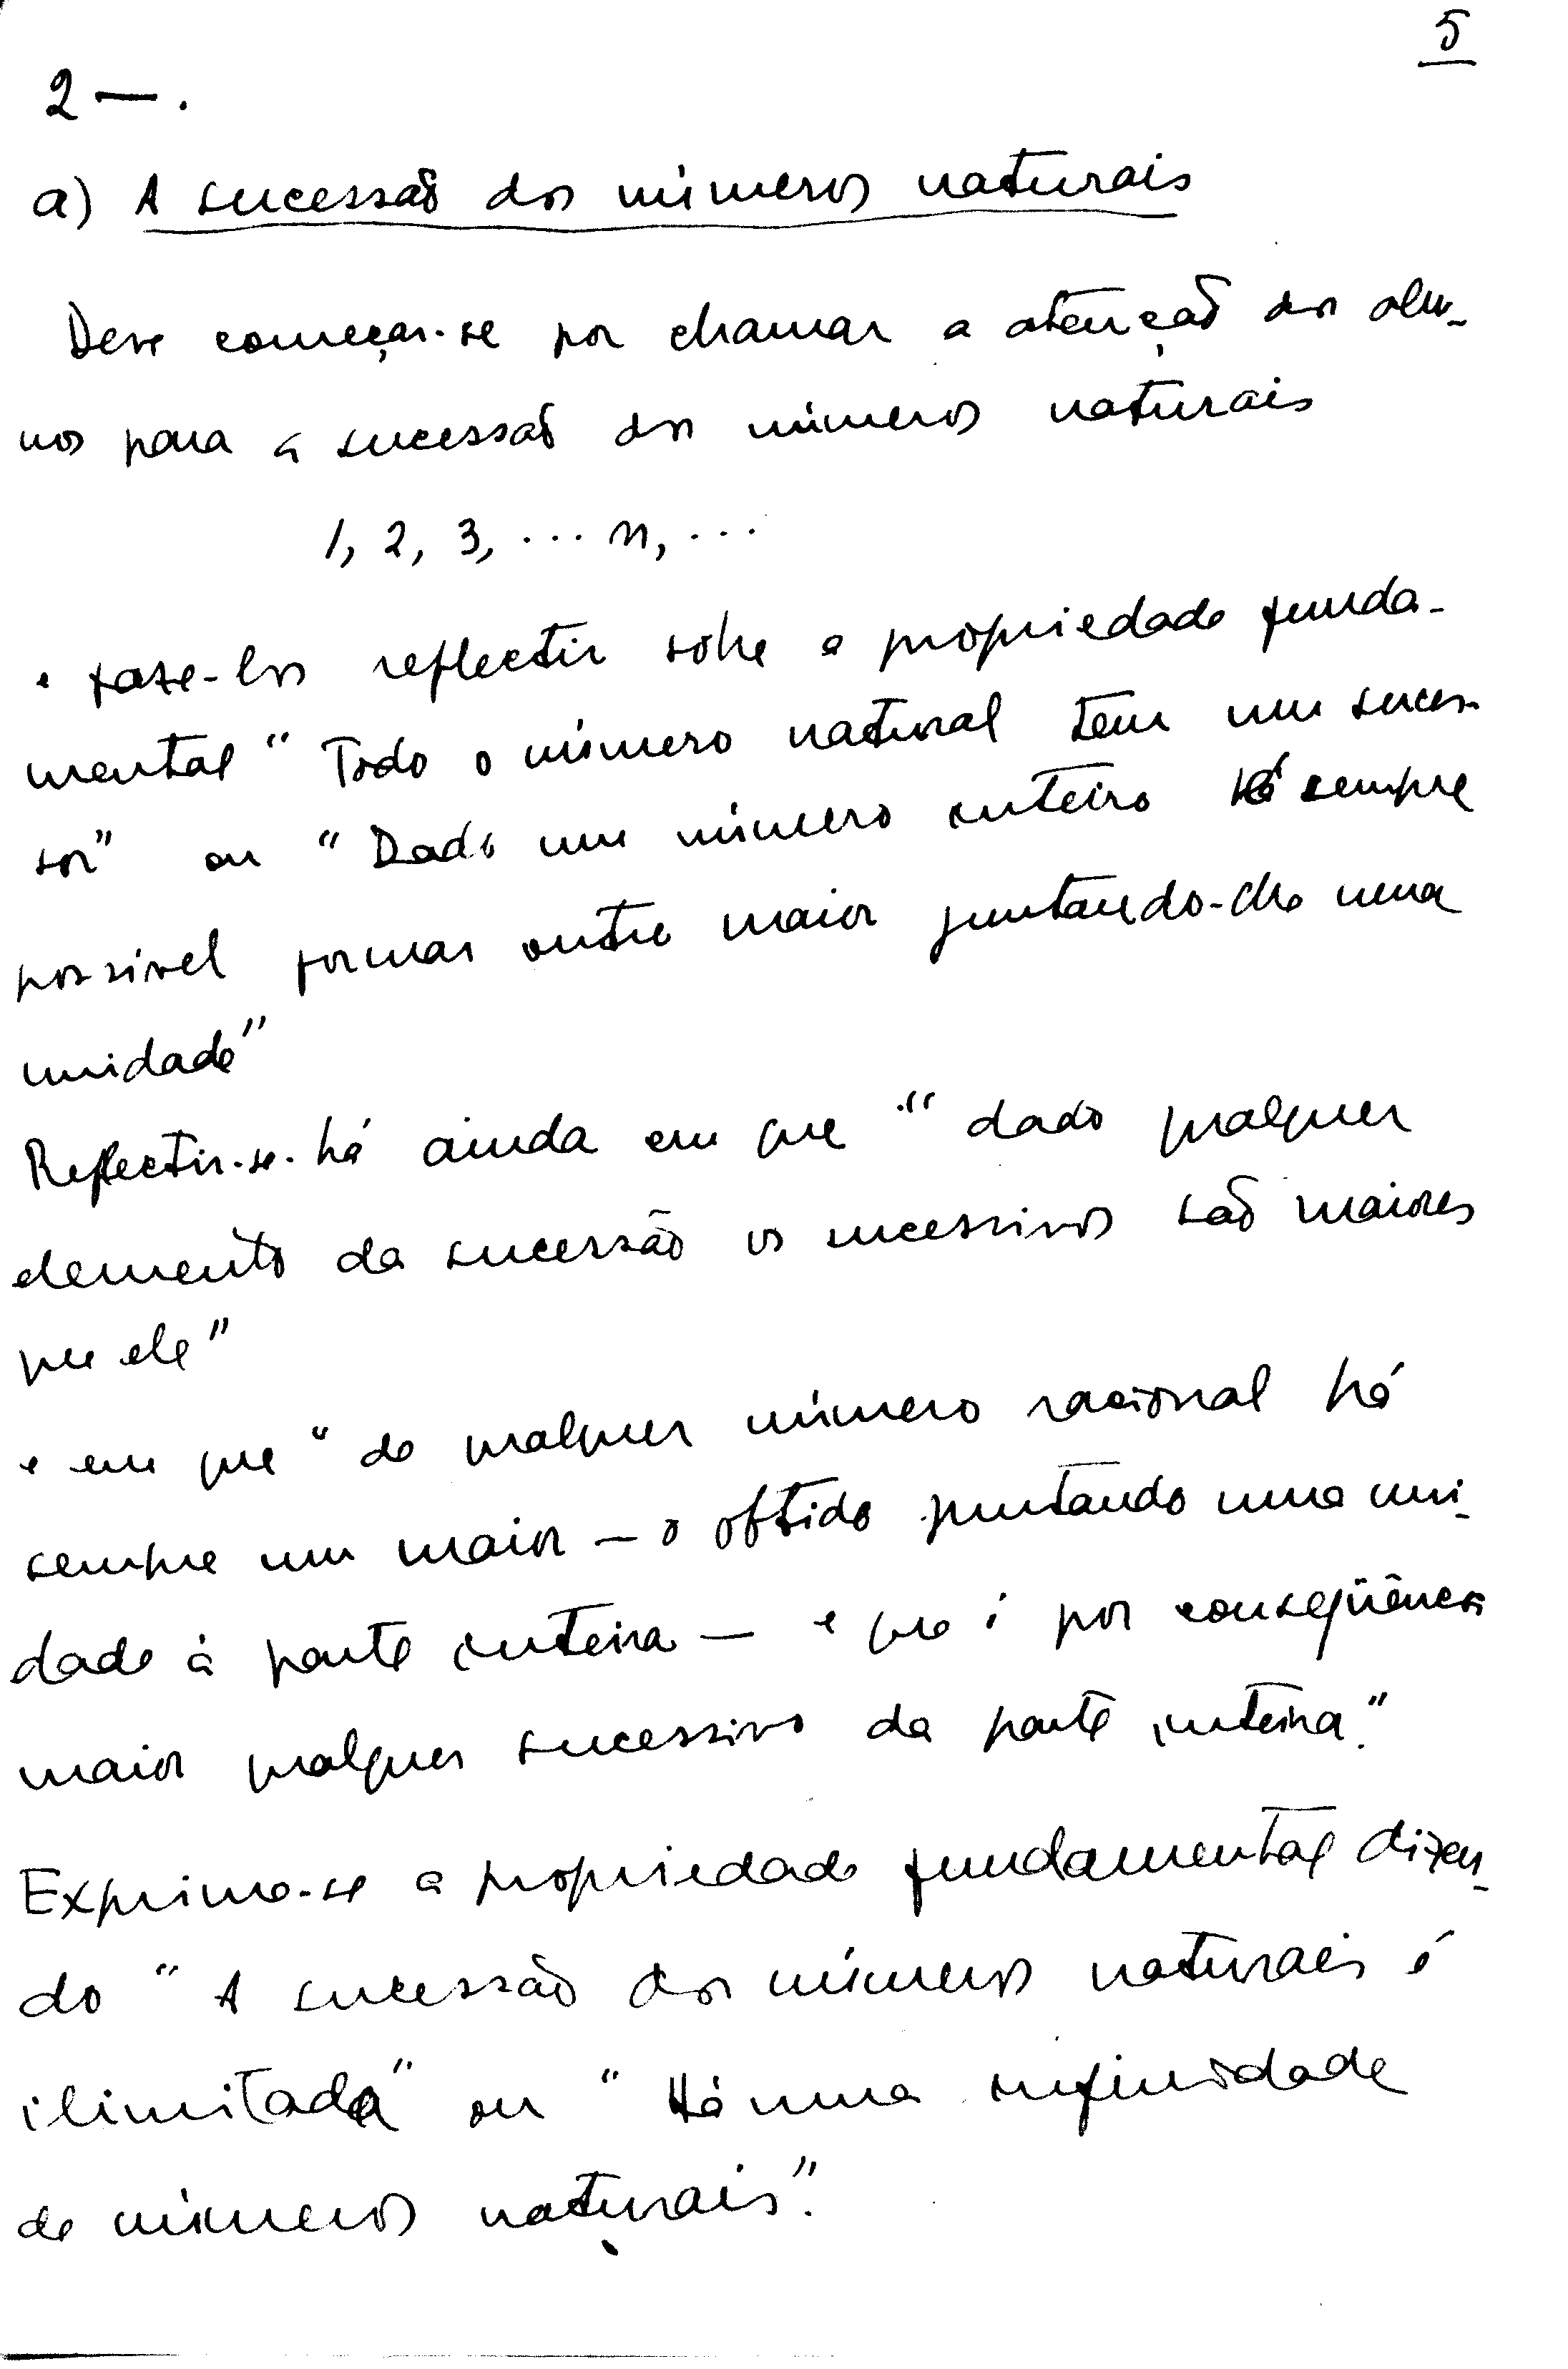 5
2 — .
a) A sucessão dos números naturais
Deve começar-se por chamar a atenção dos alu-
nos para a sucessão dos números naturais
1, 2, 3, ... n, ...
e faze-los reflectir sobre a propriedade funda-
mental " Todo o número natural tem um suces-
sor" ou " Dado um número inteiro é sempre
possivel formar outro maior juntando-lhe uma
unidade"
Reflectir-se-há ainda em que " dado qualquer
elemento da sucessão os sucessivos são maiores
que ele"
e em que " de qualquer número racional há
sempre um maior — o obtido juntando uma uni-
dade à parte inteira — e que é por conseqüência
maior qualquer sucessivo da parte inteira."
Exprime-se a propriedade fundamental dizen-
do " A sucessão dos números naturais é
ilimitada" ou " Há uma infinidade
de números naturais".